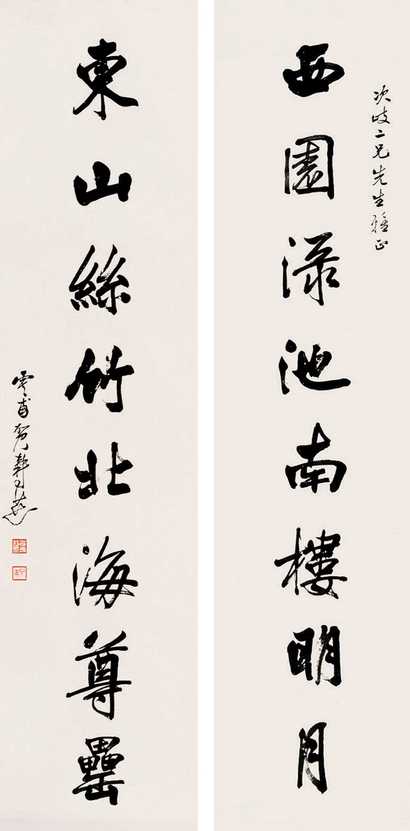 次岐二兄先生雅正
西園渌池南樓明月
東山絲竹北海尊罍
雲甫賀